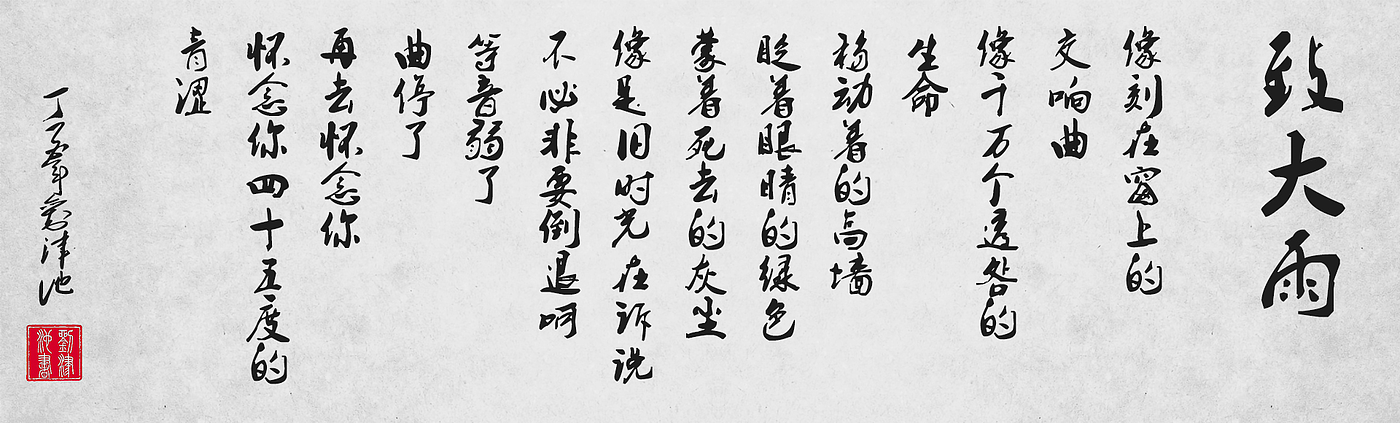 致大雨
像刻在窗上的
交响曲
像千万个透咎的
生命
移动着的高墙
眨着眼睛的绿色
蒙着死去的灰尘
像是旧时光在诉说
不必非要倒退呵
等音弱了
曲停了
再去怀念你
怀念你四十五度的
青涩
丁酉年劉津池
劉津
池書